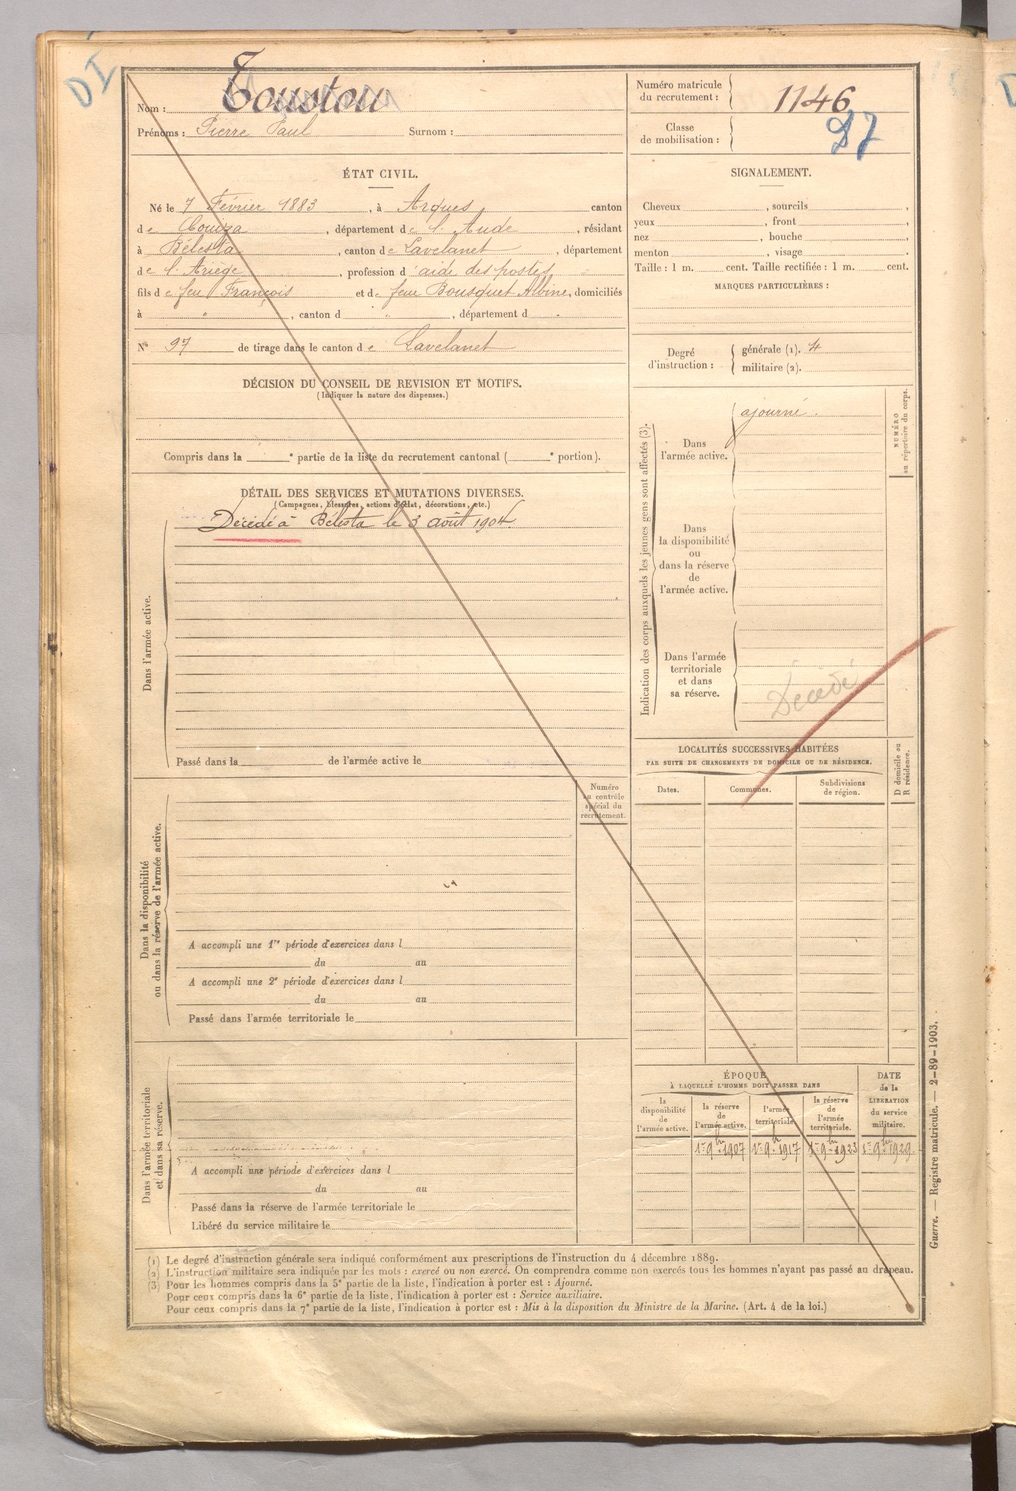 DI
Nom : Toustou
Prénoms : Pierre Paul Surnom :
Numéro matricule
du recrutement : 1146
Classe
de mobilisation : 
ÉTAT CIVIL.
Né le 7 Février 1883, à Arques, canton
de Couiza, département de l'Aude, résidant
à Bélesta, canton de Lavelanet, département
de l'Ariège, profession d'aide des postes
fils de feu François et de feue Bousquet Albine, domiciliés
à " , canton d " , département d
N° 97 de tirage dans le canton de Lavelanet
SIGNALEMENT.
Cheveux , sourcils ,
yeux , front ,
nez , bouche ,
menton , visage .
Taille : 1 m. cent. Taille rectifiée : 1 m. cent.
MARQUES PARTICULIÈRES :
Degré
d'instruction :
générale (1). 4
militaire (2).
DÉCISION DU CONSEIL DE REVISION ET MOTIFS.
(Indiquer la nature des dispenses.)
Compris dans la e partie de la liste du recrutement cantonal ( e portion).
DÉTAIL DES SERVICES ET MUTATIONS DIVERSES.
(Campagnes, blessures, actions d'éclat, décorations, etc.)
Décédé à Bélesta le 3 août 1904
Dans l'armée active.
Passé dans la de l'armée active le
Indication des corps auxquels les jeunes gens sont affectés (3).
Dans
l'armée active.
ajourné.
NUMÉRO
au répertoire du corps.
Dans
la disponibilité
ou
dans la réserve
de
l'armée active.
Dans l'armée
territoriale
et dans
sa réserve.
Décédé
LOCALITÉS SUCCESSIVES HABITÉES
PAR SUITE DE CHANGEMENTS DE DOMICILE OU DE RÉSIDENCE.
D domicile ou
R résidence.
Dates. Communes. Subdivisions
de région.
Numéro
au contrôle
spécial du
recrutement.
Dans la disponibilité
ou dans la réserve de l'armée active.
A accompli une 1re période d'exercices dans l
du au
A accompli une 2e période d'exercices dans l
du au
Passé dans l'armée territoriale le
Dans l'armée territoriale
et dans sa réserve.
A accompli une période d'exercices dans l
du au
Passé dans la réserve de l'armée territoriale le
Libéré du service militaire le
ÉPOQUE
À LAQUELLE L'HOMME DOIT PASSER DANS
la
disponibilité
de
l'armée active.
la réserve
de
l'armée active.
l'armée
territoriale.
la réserve
de
l'armée
territoriale.
DATE
de la
LIBÉRATION
du service
militaire.
1er 9bre 1907 1er 9bre 1917 1er 9bre 1923 1er 9bre 1929
(1) Le degré d'instruction générale sera indiqué conformément aux prescriptions de l'instruction du 4 décembre 1889.
(2) L'instruction militaire sera indiquée par les mots : exercé ou non exercé. On comprendra comme non exercés tous les hommes n'ayant pas passé au drapeau.
(3) Pour les hommes compris dans la 5e partie de la liste, l'indication à porter est : Ajourné.
Pour ceux compris dans la 6e partie de la liste, l'indication à porter est : Service auxiliaire.
Pour ceux compris dans la 7e partie de la liste, l'indication à porter est : Mis à la disposition du Ministre de la Marine. (Art. 4 de la loi.)
Guerre. — Registre matricule. — 2-89-1903.